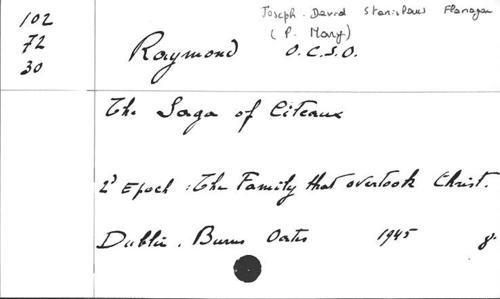 102
72
30
Joseph David Stanislaus Flanagan
(P. Mary)
Raymond O.C.S.O.
The Saga of Citeaux
2° Epoch : The Family that overtook Christ.
Dublin. Burns Oates 1945 8.